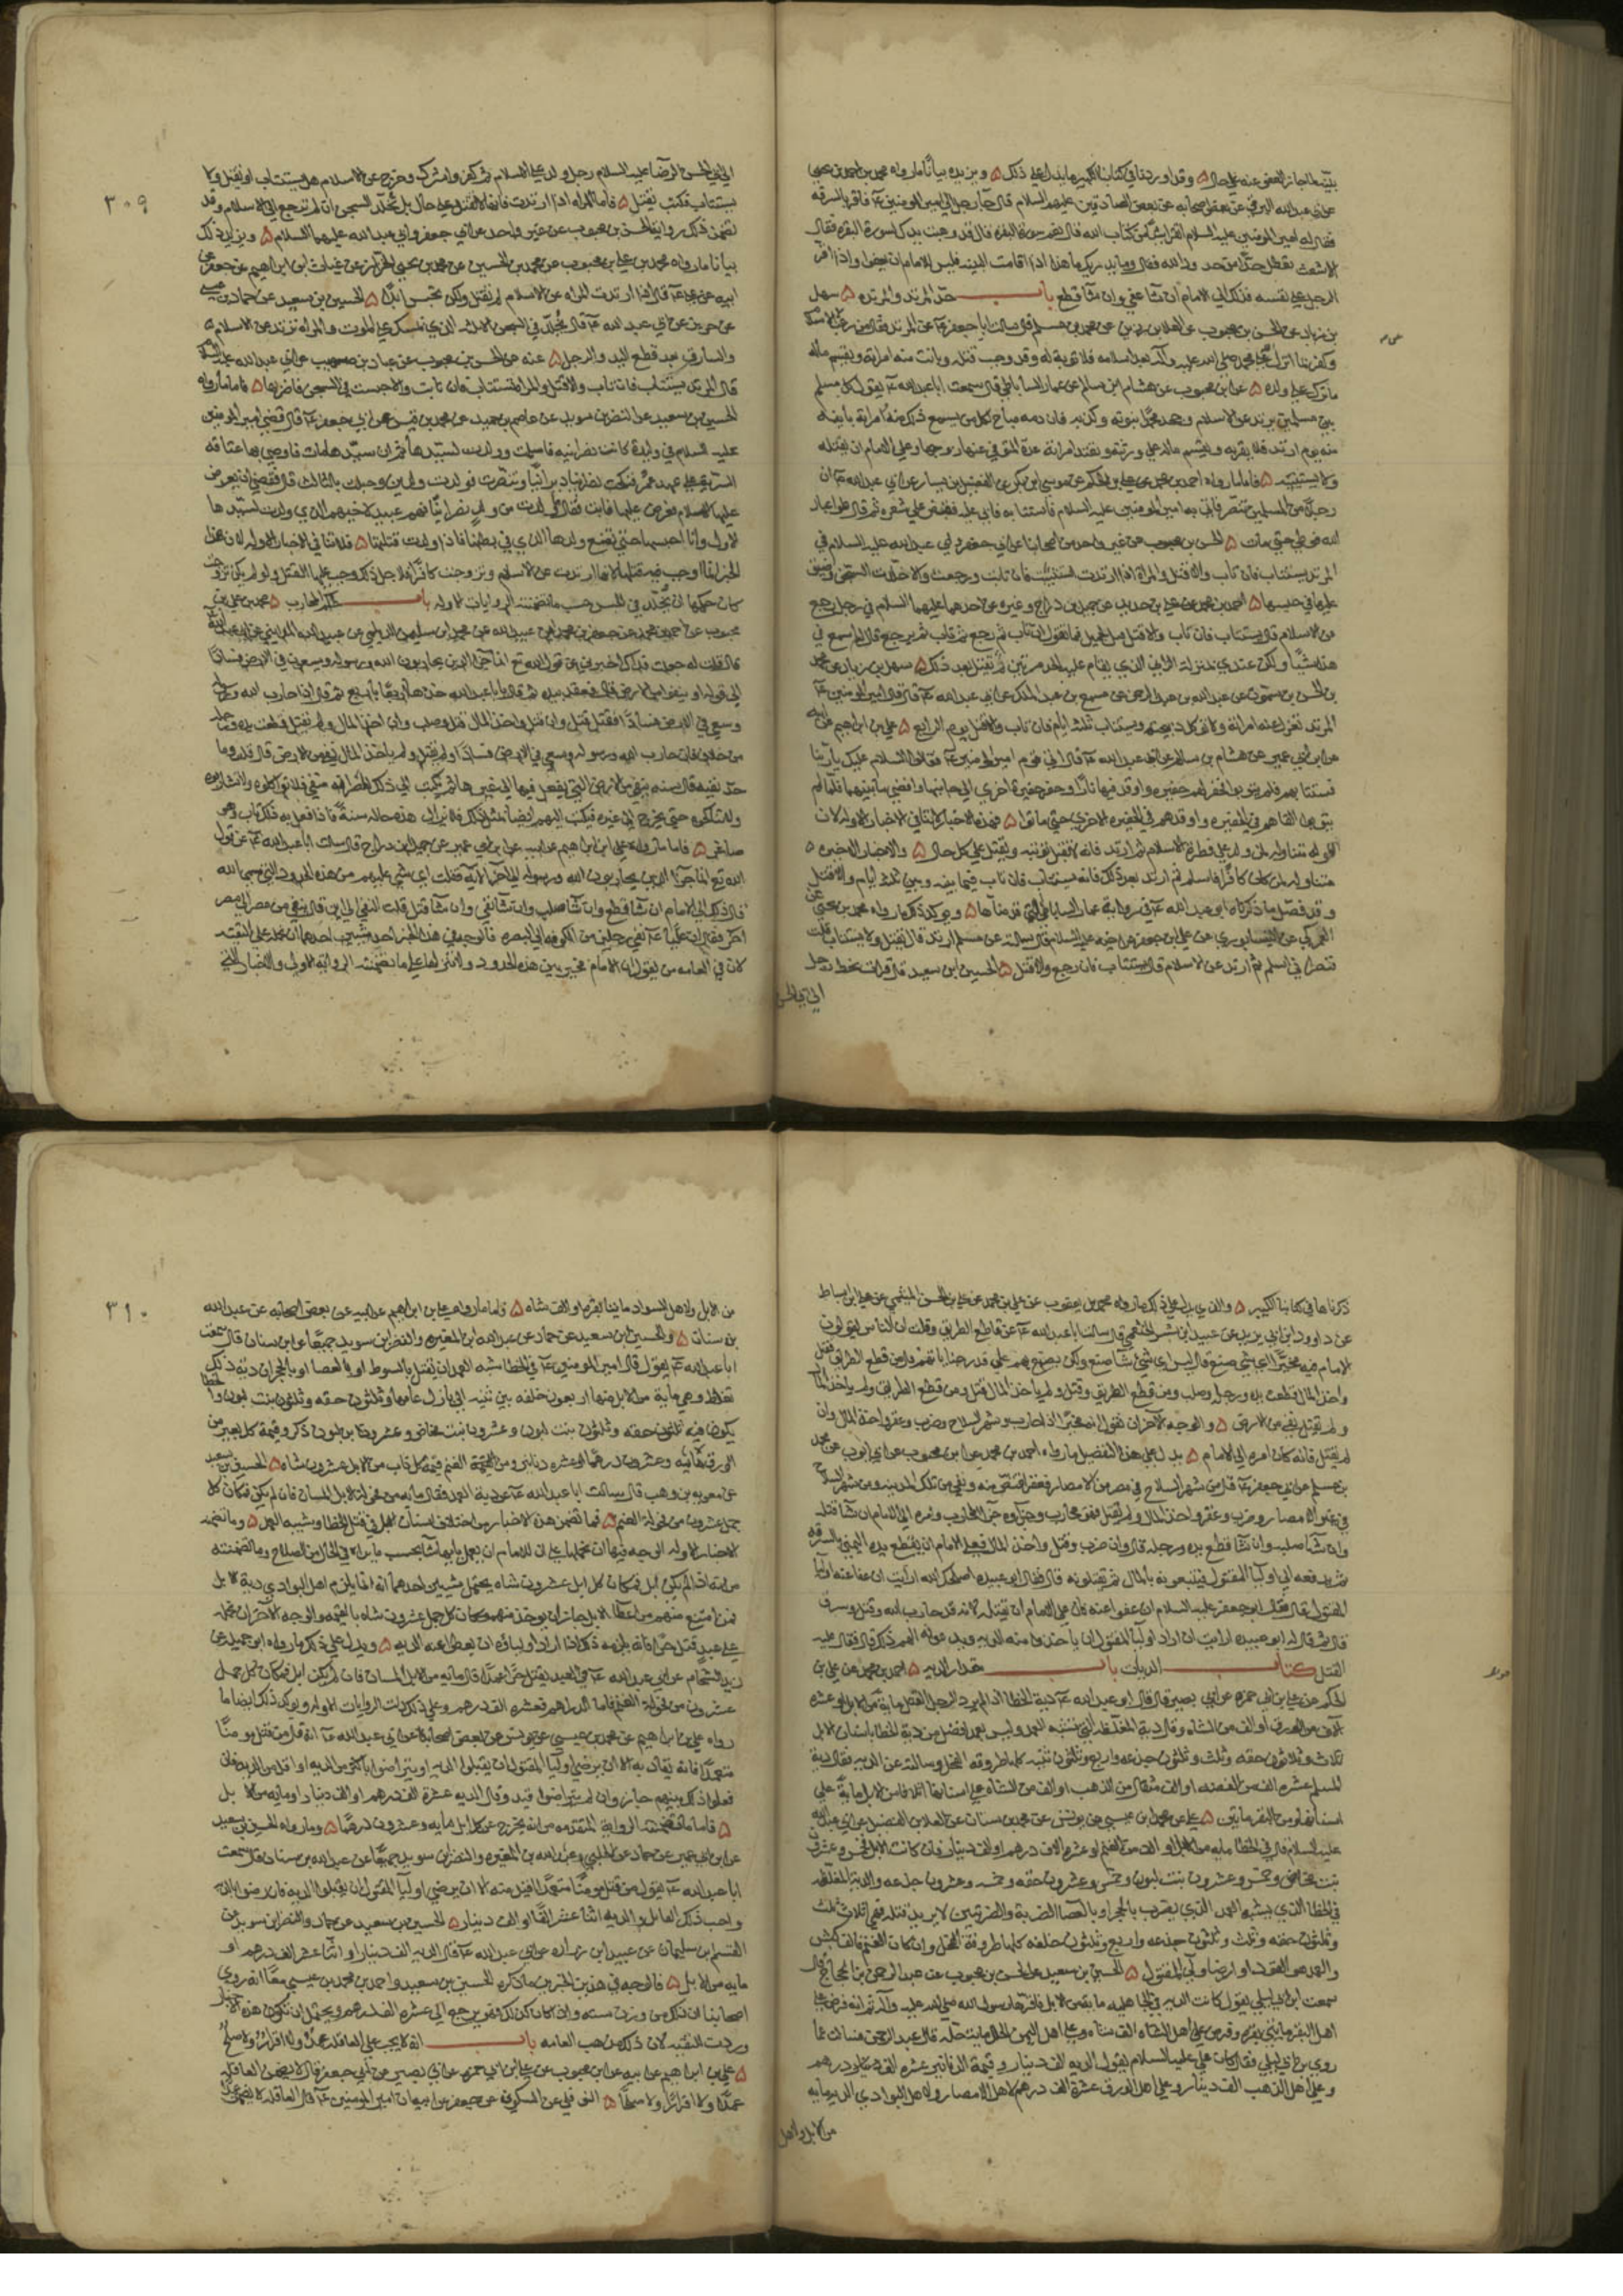 بينة لما جاز العفو عنه على حال ۵ وقد اوردنا في كتابنا الكبير ما يدل على ذلك ۵ ويزيده بيانا ما رواه محمد بن احمد بن يحيى
عن ابي عبد الله البرقي عن بعض اصحابه عن بعض الصادقين عليهم السلام قال جاء رجل الى امير المومنين ع فاقر بالسرقة
فقال له امير المومنين عليه السلام اتقرا شيئا من كتاب الله قال نعم سورة البقرة قال قد وهبت يدك لسورة البقرة فقال
الاشعث تعطل حدا من حدود الله فقال وما يدريك ما هذا اذا قامت البينة فليس للامام ان يعفو واذا اقر
الرجل على نفسه فذلك الى الامام ان شا عفى وان شا قطع باب حد المرتد والمرتده ۵ سهل
بن زياد عن الحسن بن محبوب عن العلا بن رزين عن محمد بن مسلم قال سالت ابا جعفر ع عن المرتد فقال من رغب عن الاسلام
وكفر بما انزل على محمد صلى الله عليه وآله بعد اسلامه فلا توبة له وقد وجب قتله وبانت منه امراته ويقسم ماله
ما ترك على ولده ۵ عن ابن محبوب عن هشام ابن سالم عن عمار الساباطي قال سمعت ابا عبد الله ع يقول كل مسلم
بين مسلمين يرتد عن الاسلام وجحد محمدا نبوته وكذبه فان دمه مباح لكل من سمع ذلك منه وامراته باينه
منه يوم ارتد فلا تقربه ويقسم ماله على ورثته وتعتد امراته عدة المتوفى عنها زوجها وعلى الامام ان يقتله
ولا يستتيبه ۵ فاما ما رواه احمد بن محمد عن علي بن الحكم عن موسى ابن بكر عن الفضيل بن يسار عن ابي عبد الله ع ان
رجلا من المسلمين تنصر فاتي به امير المومنين عليه السلام فاستتابه فابى عليه فقبض على شعره ثم قال طوا عباد
الله فوطي حتى مات ۵ الحسن بن محبوب عن غير واحد من اصحابنا عن ابي جعفر وابي عبد الله عليه السلام في
المرتد يستتاب فان تاب والا قتل والمراة اذا ارتدت استتيبت فان تابت ورجعت والا خلدت السجن وضيق
عليها في حبسها ۵ احمد بن محمد عن علي بن حديد عن جميل بن دراج وغيره عن احدهما عليهما السلام في رجل رجع
من الاسلام قال يستتاب فان تاب والا قتل قيل لجميل فما تقول ان تاب ثم رجع ثم تاب ثم رجع قال لم اسمع في
هذا شيئا ولكن عندي بمنزلة الزاني الذي يقام عليه الحد مرتين ثم يقتل بعد ذلك ۵ سهل بن زياد عن محمد
بن الحسن بن شمون عن عبد الله بن عبد الرحمن عن مسمع بن عبد الملك عن ابي عبد الله ع قال قال امير المومنين ع
المرتد تعزل عنه امراته ولا توكل ذبيحته ويستتاب ثلثة ايام فان تاب والا قتل يوم الرابع ۵ علي بن ابراهيم عن ابيه
عن ابن ابي عمير عن هشام بن سالم عن ابي عبد الله ع قال اتى قوم امير المومنين ع فقالوا السلام عليك يا ربنا
فاستتابهم فلم يتوبوا فحفر لهم حفيرة واوقد فيها نارا وحفر حفيرة اخرى الى جانبها وافضى ما بينهما فلما لم
يتوبوا القاهم في الحفيرة واوقد في الحفيرة الاخرى حتى ماتوا ۵ فهذه الاخبار لا تنافي الاخبار الاوله لان
الاوله متناوله لمن ولد على فطرة الاسلام ثم ارتد فانه لا تقبل توبته ويقتل على كل حال ۵ والاخبار الاخيرة ۵
متناوله لمن كان كافرا فاسلم ثم ارتد بعد ذلك فانه يستتاب فان تاب فيما بينه وبين ثلثة ايام والا قتل
وقد فصل ما ذكرناه ابو عبد الله ع في رواية عمار الساباطي التي قدمناها ۵ ويوكد ذلك ما رواه محمد بن يحيى عن
العمركي عن النيسابوري عن علي بن جعفر عن اخيه عليه السلام قال سالته عن مسلم ارتد قال يقتل ولا يستتاب قلت
فنصراني اسلم ثم ارتد عن الاسلام قال يستتاب فان رجع والا قتل ۵ الحسين ابن سعيد قال قرات بخط رجل
الى ابي الحسن
٣٠٩
الى ابي الحسن الرضا عليه السلام رجل ولد على الاسلام ثم كفر واشرك وخرج عن الاسلام هل يستتاب او يقتل ولا
يستتاب فكتب يقتل ۵ فاما المراه اذا ارتدت فانها لا تقتل على حال بل تخلد السجن ان لم ترجع الى الاسلام وقد
تضمن ذلك رواية الحسن بن محبوب عن غير واحد عن ابي جعفر وابي عبد الله عليهما السلام ۵ ويزيد ذلك
بيانا ما رواه محمد بن علي بن محبوب عن محمد بن الحسين عن محمد بن يحيى الخزاز عن غياث ابن ابراهيم عن جعفر عن
ابيه عن علي ع قال اذا ارتدت المراه عن الاسلام لم تقتل ولكن تحبس ابدا ۵ الحسين بن سعيد عن حماد بن عيسى
عن حريز عن ابي عبد الله ع قال لا يخلد في السجن الا ثلثه الذي يمسك على الموت والمراه ترتد عن الاسلام
والسارق بعد قطع اليد والرجل ۵ عنه عن الحسن بن محبوب عن عباد بن صهيب عن ابي عبد الله عليه السلام
قال المرتد يستتاب فان تاب والا قتل والمراة تستتاب فان تابت والا حبست في السجن واضر بها ۵ فاما ما رواه
الحسين بن سعيد عن النضر بن سويد عن عاصم بن حميد عن محمد بن قيس عن ابي جعفر ع قال قضى امير المومنين
عليه السلام في وليدة كانت نصرانيه فاسلمت وولدت لسيدها ثم ان سيدها مات فاوصى بها عتاقة
السرية على عهد عمر فنكحت نصرانيا ديرانيا وتنصرت فولدت ولدين وحبلت بالثالث قال فقضى ان يعرض
عليها الاسلام فعرض عليها فابت فقال ما ولدت من ولد نصرانيا فهم عبيد لاخيهم الذي ولدت لسيدها
الاول وانا احبسها حتى تضع ولدها الذي في بطنها فاذا ولدت قتلتها ۵ فلا تنافي الاخبار الاوله لان هذا
الخبر انما وجب فيه قتلها لانها ارتدت عن الاسلام وتزوجت كافرا فلاجل ذلك وجب عليها القتل ولو لم يكن تزوجت
كان حكمها ان تخلد في الحبس حسب ما تضمنته الروايات الاوله باب حكم المحارب ۵ محمد بن علي بن
محبوب عن احمد بن محمد عن جعفر بن محمد بن عبيد الله عن محمد ابن سليمان الديلمي عن عبيد الله المدايني عن ابي عبد الله
قال قلت له جعلت فداك اخبرني عن قول الله تع انما جزا الذين يحاربون الله ورسوله ويسعون في الارض فسادا
الى قوله او ينفوا من الارض قال فعقد بيده ثم قال يا با عبد الله خذها اربعا باربع ثم قال اذا حارب الله ورسوله
وسعى في الارض فسادا فقتل قتل وان قتل واخذ المال قتل وصلب وان اخذ المال ولم يقتل قطعت يده ورجله
من خلاف وان حارب الله ورسوله وسعى في الارض فسادا ولم يقتل ولم ياخذ المال نفي من الارض قال قلت وما
حد نفيه قال سنه ينفى من الارض التي يفعل فيها الى غيرها ثم يكتب الى ذلك المصر انه منفي فلا تواكلوه ولا تشاربوه
ولا تناكحوه حتى يخرج الى غيره فيكتب اليهم ايضا بمثل ذلك فلا يزال هذه حاله سنة فاذا فعل به ذلك تاب وهو
صاغر ۵ فاما ما رواه علي ابن ابراهيم عن ابيه عن ابن ابي عمير عن جميل ابن دراج قال سالت ابا عبد الله ع عن قول
الله تع انما جزا الذين يحاربون الله ورسوله الى اخر الاية فقلت اي شي عليهم من هذه الحدود التي سمى الله
قال ذلك الى الامام ان شا قطع وان شا صلب وان شا نفى وان شا قتل قلت النفي الى اين قال ينفى من مصر الى مصر
اخر فقال ان عليا ع نفى رجلين من الكوفه الى البصره ۵ فالوجه في هذا الخبر احد شيئين احدهما ان نحمله على التقيه
لان في العامه من يقول ان الامام مخير بين هذه الحدود ولا تنزلها على ما تضمنته الرواية الاولى والاخبار التي
ذكرناها في كتابنا الكبير ۵ والذي يدل على ذلك ما رواه محمد بن يعقوب عن علي بن محمد عن علي بن الحسن الميثمي عن علي ابن اسباط
عن داوود ابن ابي يزيد عن عبيد ابن بشر الخثعمي قال سالت ابا عبد الله ع عن قاطع الطريق وقلت ان الناس يقولون
الامام فيه مخير اي شي صنع قال ليس اي شي شا صنع ولكن يصنع بهم على قدر جناياتهم فقال من قطع الطريق فقتل
واخذ المال قطعت يده ورجله وصلب ومن قطع الطريق وقتل ولم ياخذ المال قتل ومن قطع الطريق ولم ياخذ المال
ولم يقتل نفي من الارض ۵ والوجه الآخر ان نقول انه مخير اذا حارب وشهر السلاح وضرب وعقر واخذ المال وان
لم يقتل فانه كان امره الى الامام ۵ يدل على هذا التفصيل ما رواه احمد بن محمد عن ابن محبوب عن ابي ايوب عن محمد
بن مسلم عن ابي جعفر ع قال من شهر السلاح في مصر من الامصار فعقر اقتص منه ونفي من تلك المدينه ومن شهر السلاح
في غير الامصار وضرب وعقر واخذ المال ولم يقتل فهو محارب وجزاوه جزا المحارب وامره الى الامام ان شا قتله
وان شا صلبه وان شا قطع يده ورجله قال وان ضرب وقتل واخذ المال فعلى الامام ان يقطع يده اليمنى بالسرقه
ثم يدفعه الى اوليا المقتول فيتبعونه بالمال ثم يقتلونه قال فقال ابو عبيده اصلحك الله ارايت ان عفا عنه اوليا
المقتول فقال ابو جعفر عليه السلام ان عفوا عنه فان على الامام ان يقتله لانه قد حارب الله وقتل وسرق
قال ثم قال له ابو عبيده ارايت ان اراد اوليا المقتول ان ياخذوا منه الديه ويدعونه الهم ذلك قال فقال عليه
القتل كتاب الديات باب مقدار الديه ۵ احمد بن محمد عن علي بن
الحكم عن علي بن ابي حمزه عن ابي بصير قال قال ابو عبد الله ع دية الخطا اذا لم يرد الرجل القتل ماية من الابل او عشره
آلاف من الورق او الف من الشاه وقال دية المغلظه التي تشبه العمد وليس بعمد افضل من دية الخطا باسنان الابل
ثلاث وثلاثون حقه وثلث وثلثون جذعه واربع وثلثون ثنيه كلها طروقه الفحل وسالته عن الديه فقال دية
المسلم عشره الف من الفضه او الف مثقال من الذهب او الف من الشاه على اسنانها اثلاثا ومن الابل ماية على
اسنانها ومن البقر مايتين ۵ علي عن محمد ابن عيسى عن يونس عن محمد بن سنان عن العلا بن الفضيل عن ابي عبد الله
عليه السلام قال في الخطا مايه من الابل او الف من الغنم او عشره الاف درهم او الف دينار فان كانت الابل فخمس وعشرون
بنت مخاض وخمس وعشرون بنت لبون وخمس وعشرون حقه وخمسه وعشرون جذعه والديه المغلظه
في الخطا الذي يشبه العمد الذي يضرب بالحجر او بالعصا الضربة والضربتين لا يريد قتله فهي اثلاث ثلث
وثلثون حقه وثلث وثلثون جذعه واربع وثلثون خلفه كلها طروقة الفحل وان كان الغنم فالف كبش
والعمد هو القود او رضا ولي المقتول ۵ الحسين بن سعيد عن الحسن بن محبوب عن عبد الرحمن بن الحجاج قال
سمعت ابن ابي ليلى يقول كانت الديه في الجاهليه مايه من الابل فاقرها رسول الله صلى الله عليه وآله ثم انه فرض على
اهل البقر مايتي بقره وفرض على اهل الشاه الف شاه وعلى اهل اليمن الحلل مايتي حله قال عبد الرحمن فسالت عما
روى ابن ابي ليلى فقال كان علي عليه السلام يقول الديه الف دينار وقيمة الدنانير عشره الف درهم
وعلى اهل الذهب الف دينار وعلى اهل الورق عشرة الف درهم لاهل الامصار ولاهل البوادي الديه مايه
من الابل ولاهل
٣١٠
من الابل ولاهل السواد مايتا بقره او الف شاه ۵ فاما ما رواه علي بن ابراهيم عن ابيه عن بعض اصحابه عن عبد الله
بن سنان ۵ والحسين ابن سعيد عن حماد عن عبد الله ابن المغيره والنضر ابن سويد جميعا عن ابن سنان قال سمعت
ابا عبد الله ع يقول قال امير المومنين ع في الخطا شبه العمد ان يقتل بالسوط او بالعصا او بالحجر ان دية ذلك
تغلظ وهي ماية من الابل منها اربعون خلفه بين ثنيه الى بازل عامها وثلثون حقه وثلثون بنت لبون والخطا
يكون فيه ثلثون حقه وثلثون بنت لبون وعشرون بنت مخاض وعشرون ابن لبون ذكر وقيمة كل بعير من
الورق مايه وعشرون درهما او عشره دنانير ومن الغنم قيمة كل ناب من الابل عشرون شاه ۵ الحسين بن سعيد
عن معويه بن وهب قال سالت ابا عبد الله ع عن دية العمد فقال مايه من فحولة الابل المسان فان لم يكن فمكان كل
جمل عشرون من فحولة الغنم ۵ فما تضمن هذه الاخبار من اختلاف اسنان الابل في قتل الخطا وشبه العمد ۵ وما تضمنه
الاخبار الاوله الوجه فيها ان نحملها على ان للامام ان يعمل بايها شا بحسب ما يراه في الحال من الصلاح وما تضمنته
من انه اذا لم يكن ابل فمكان كل ابل عشرون شاه يحتمل شيئين احدهما انه انما يلزم اهل البوادي دية الابل
فمن امتنع منهم من اعطا الابل جاز ان يوخذ منهم مكان كل جمل عشرون شاه بالقيمه والوجه الآخر ان نحمله
على عبد قتل حرا فانه يلزمه ذلك اذا اراد اولياؤه ان يعطى عنه الديه ۵ ويدل على ذلك ما رواه ابن جميل عن
زيد الشحام عن ابي عبد الله ع في العبد يقتل حرا عمدا قال مايه من الابل المسان فان لم يكن ابل فمكان كل جمل
عشرون من فحولة الغنم فاما الدراهم فعشره الف درهم وعلى ذلك دلت الروايات الاوله ويوكد ذلك ايضا ما
رواه علي بن ابراهيم عن محمد بن عيسى عن يونس عن بعض اصحابنا عن ابي عبد الله ع انه قال من قتل مومنا
متعمدا فانه يقاد به الا ان يرضى اوليا المقتول ان يقبلوا الديه او يتراضوا باكثر من الديه او اقل من الديه فان
فعلوا ذلك بينهم جاز وان لم يتراضوا قيد وقال الديه عشرة الف درهم او الف دينار او مايه من الابل
۵ فاما ما تضمنته الرواية المتقدمه من انه يخرج عن كل ابل مايه وعشرون درهما ۵ وما رواه الحسين بن سعيد
عن ابن ابي عمير عن حماد عن الحلبي وعبد الله بن المغيره والنضر ابن سويد جميعا عن عبد الله بن سنان قال سمعت
ابا عبد الله ع يقول من قتل مومنا متعمدا قيد منه الا ان يرضى اوليا المقتول ان يقبلوا الديه فان رضوا بالديه
واحب ذلك القاتل فالديه اثنا عشر الفا او الف دينار ۵ الحسين بن سعيد عن حماد والنضر ابن سويد عن
القسم ابن سليمان عن عبيد ابن زراره عن ابي عبد الله ع قال الديه الف دينار او اثنا عشر الف درهم او
مايه من الابل ۵ فالوجه في هذين الخبرين ما ذكره الحسين بن سعيد واحمد بن محمد بن عيسى معا انه روى
اصحابنا ان ذلك من وزن سته وان كان كذلك فهو يرجع الى عشره الف درهم ويحتمل ان تكون هذه الاخبار
وردت للتقيه لان ذلك مذهب العامه باب انه لا يجب على العاقله عمد ولا اقرار ولا صلح
۵ علي بن ابراهيم عن ابيه عن ابن محبوب عن علي ابن ابي حمزه عن ابي بصير عن ابي جعفر ع قال لا يضمن العاقله
عمدا ولا اقرارا ولا صلحا ۵ النوفلي عن السكوني عن جعفر عن ابيه ان امير المومنين ع قال العاقله لا تضمن عمدا